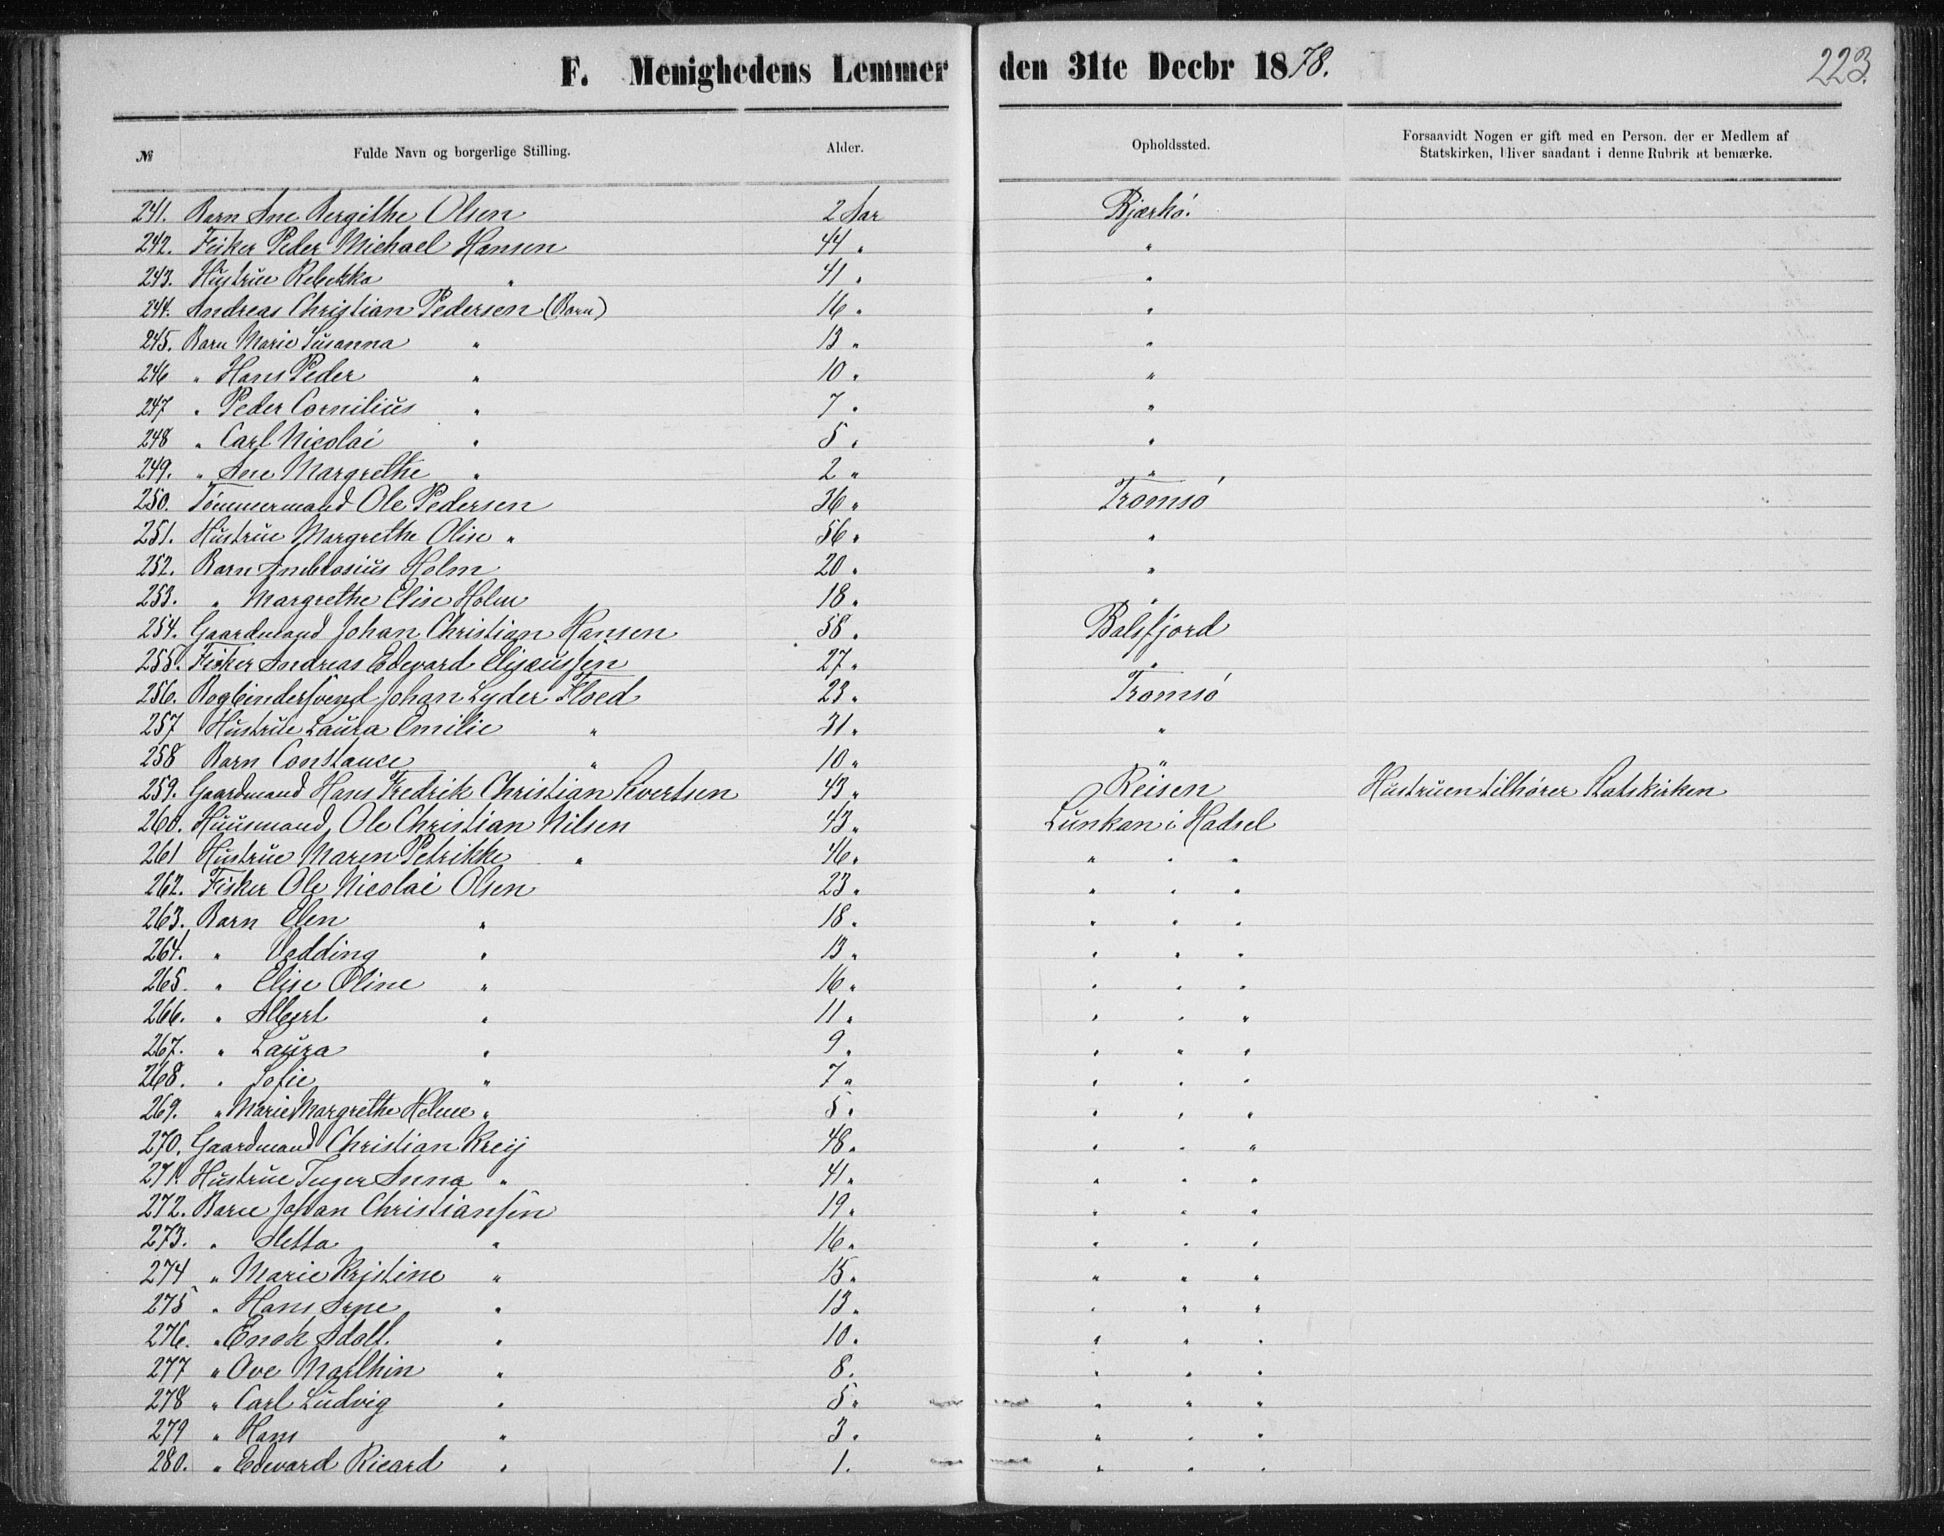 F. Menighedens Lemmer den 31te Decbr 1878. 223.
№ Fulde Navn og borgerlige Stilling. Alder. Opholdssted. Forsaavidt Nogen er gift med en Person, der er Medlem af
Statskirken, bliver saadant i denne Rubrik at bemærke.
241. Barn Ane Bergithe Olsen 2 Aar Bjærkö.
242. Fisker Peder Michael Hansen 44 " "
243. Hustrue Rebekka " 41 " "
244. Andreas Christian Pedersen (Barn) 16 " "
245. Barn Marie Susanna " 13 " "
246 " Hans Peder " 10 " "
247 " Peder Cornilius " 7 " "
248 " Carl Nicolai " 5 " "
249. " Ane Margrethe " 2 " "
250. Tömmermand Ole Pedersen 36 " Tromsö
251. Hustrue Margrethe Oline " 56 " "
252. Barn Ambrosius Holm 20 " "
253. " Margrethe Elise Holm 18 " "
254. Gaardmand Johan Christian Hansen 58 " Balsfjord
255. Fisker Andreas Edevard Elisæussen 27 " "
256. Bogbindersvend Johan Lyder Floed 23 " Tromsö
257 Hustrue Laura Emilie " 31 " "
258 Barn Constance " 10 " "
259. Gaardmand Hans Fredrik Christian Sivertsen 43 " Reisen Hustruen tilhører Statskirken
260. Huusmand Ole Christian Nilsen 43 " Lunkan i Hadsel
261 Hustrue Maren Petrikke " 46 " " " "
262. Fisker Ole Nicolai Olsen 23 " " " "
263. Barn Elen " 18 " " " "
264. " Vedding " 13 " " " "
265. " Elise Oline " 16 " " " "
266. " Albert " 11 " " " "
267. " Laura " 9 " " " "
268. " Sofie " 7 " " " "
269. " Marie Margrethe Helene " 5 " " " "
270. Gaardmand Christian Kreij 48 " " " "
271. Hustrue Inger Anna " 41 " " " "
272. Barn Johan Christiansen 19 " " " "
273. " Hetta " 16 " " " "
274 " Marie Kristine " 15 " " " "
275 " Hans Arne " 13 " " " "
276. " Enok Adolf. " 10 " " " "
277 " Ove Marthin " 8 " " " "
278 " Carl Ludvig " 5 " " " "
279 " Hans " 3 " " " "
280. " Edevard Ricard " 1. " " "